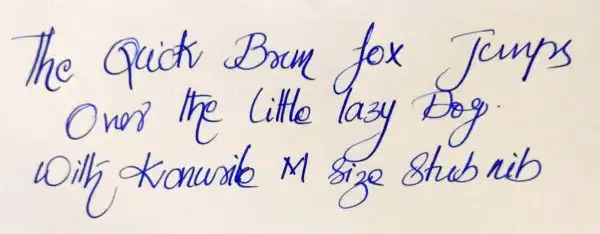 The Quick Brown fox Jumps
Over the little lazy Dog.
With Kanwrite M size Stub nib